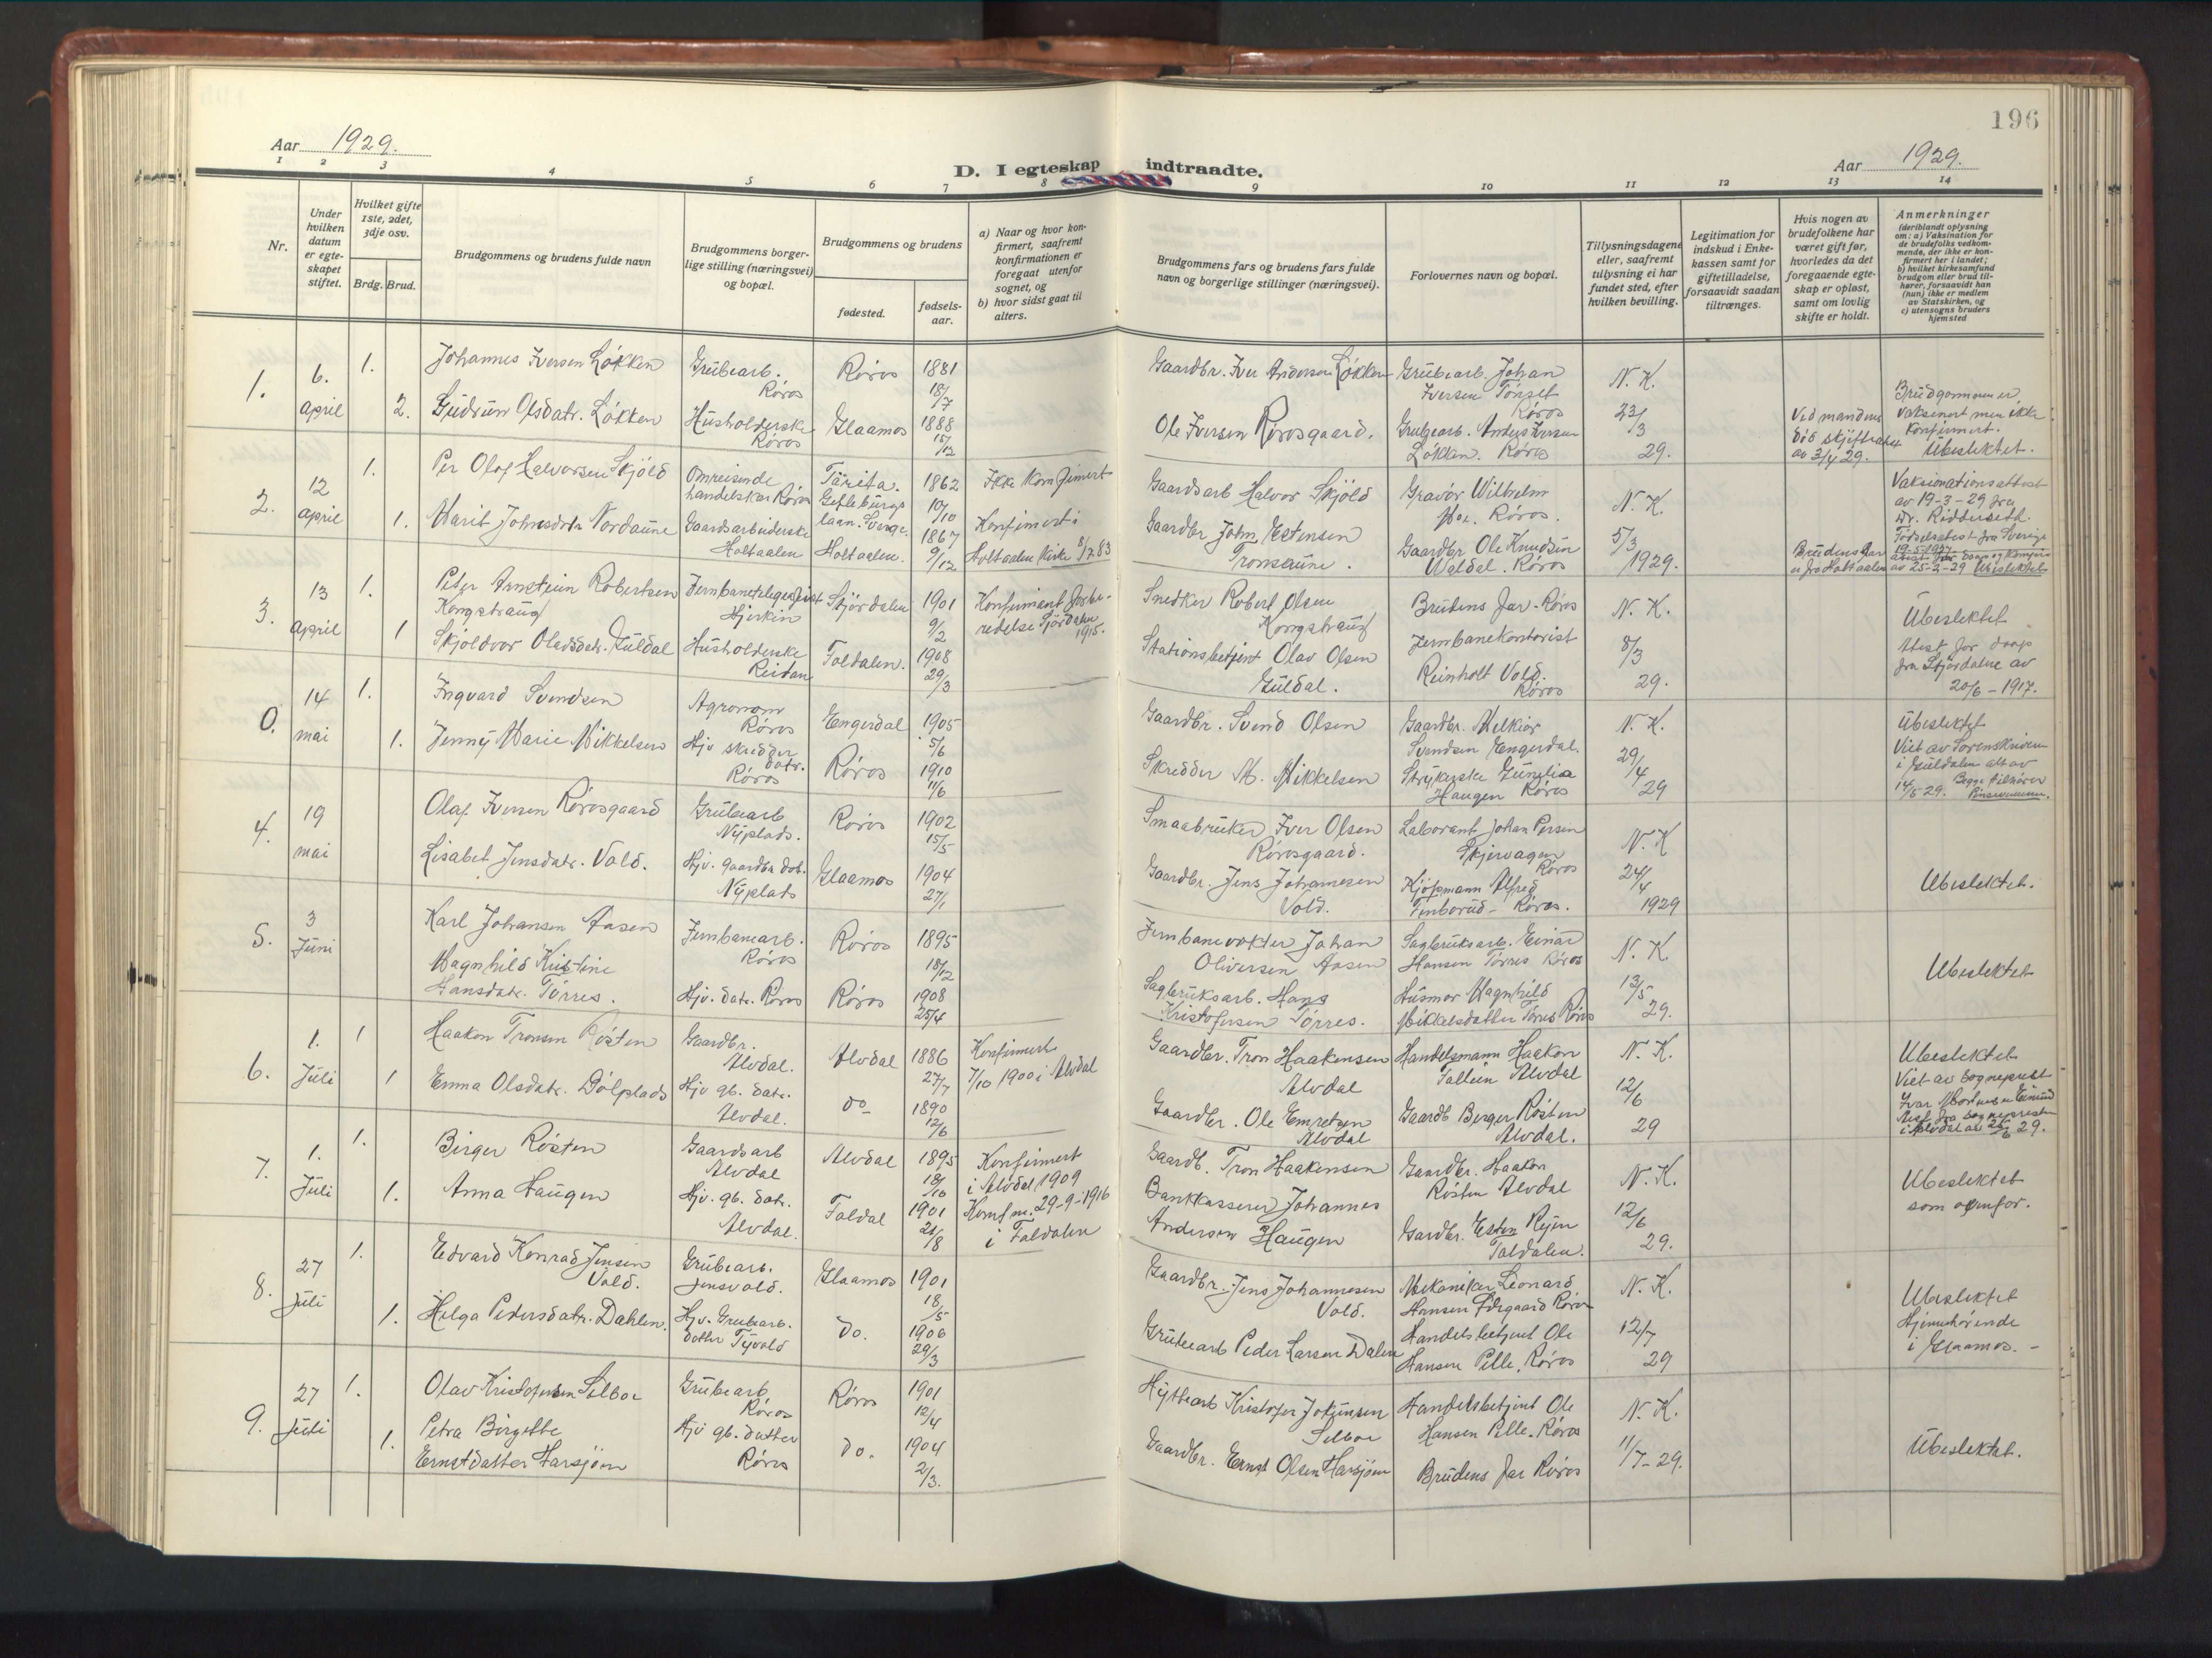 196
Aar 1929.
D. I egteskap indtraadte.
Aar 1929.
1 2 3 4 5 6 7 8 9 10 11 12 13 14
Nr.
Under hvilken datum er egte-skapet stiftet.
Hvilket gifte 1ste, 2det, 3dje osv.
Brdg. Brud.
Brudgommens og brudens fulde navn
Brudgommens borger-lige stilling (næringsvei) og bopæl.
Brudgommens og brudens
fødested.
fødsels-aar.
a) Naar og hvor kon-firmert, saafremt konfirmationen er foregaat utenfor sognet, og
b) hvor sidst gaat til alters.
Brudgommens fars og brudens fars fulde navn og borgerlige stillinger (næringsvei).
Forlovernes navn og bopæl.
Tillysningsdagene eller, saafremt tillysning ei har fundet sted, efter hvilken bevilling.
Legitimation for indskud i Enke-kassen samt for giftetilladelse, forsaavidt saadan tiltrænges.
Hvis nogen av brudefolkene har været gift før, hvorledes da det foregaaende egte-skap er opløst, samt om lovlig skifte er holdt.
Anmerkninger (deriblandt oplysning om: a) Vaksination for de brudefolks vedkom-mende, der ikke er kon-firmert her i landet; b) hvilket kirkesamfund brudgom eller brud til-hører, forsaavidt han (hun) ikke er medlem av Statskirken, og c) utensogns bruders hjemsted
1. 6. april
1. Johannes Iversen Løkken
Grubearb. Røros
Røros
1881 18/7
2. Gudrun Olsdatr. Løkken
Husholderske Røros
Glaamos
1888 15/12
Gaardbr. Iver Andersen Løkken
Ole Iversen Rørosgaard.
Grubearb. Johan Iversen Tønset Røros
Grubearb. Anders Iversen Løkken. Røros
N. K. 23/3 29.
Ved mandens død skifteattest av 3/4 29.
Brudgommen er vaksinert men ikke konfirmert.
Ubeslektet.
2. 12 april
1. Per Olof Halvorsen Skjöld
Omreisende handelskar Røros
Gefleborgs laen. Sverge.
1862 10/10
Ikke konfirmert
1. Marit Johnsdatr Nordaune
Gaardsarbeiderske Holtaalen
Holtaalen.
1867 9/12
Konfirmert i Holtaalen kirke 8/7 83
Gaardsarb Halvor Skjöld
Gaardbr John Estensen Tronsaune.
Gravør Wilhelm Røros.
Gaardbr Ole Knudsen Waldal. Røros
N. K. 5/3 1929.
Brudens far er fra Holtaalen
Vaksinationsattest av 19-3-29 fra Dr. Ridderseth.
Fødselsattest fra Sverige
av 25-2-29 Ubeslektet
3. 13 april
1. Peter Arnstein Robertsen Kongshaug
Jernbanetelegrafist Hjerkin
Stjørdalen
1901 9/2
Konfirmant forbe-redelse Stjørdalen 1915.
1 Skjoldvor Olavsdatr. Guldal
Husholderske Reitan
Foldalen.
1908 29/3
Snedker Robert Olsen Kongshaug
Stationsbetjent Olav Olsen Guldal.
Brudens far - Røros
Jernbanekontorist Reinholt Vold. Røros
N. K. 8/3 29.
Ubeslektet
Attest for daap fra Stjørdalene av 20/6 - 1917.
0. 14 mai
1. Ingvard Svendsen
Agronom Røros
Engerdal
1905 5/6
1. Jenny Marie Mikkelsen
Hjv skredder datr. Røros
Røros
1910 11/6
Gaardbr. Svend Olsen
Skredder M. Mikkelsen
Gaardbr. Melkior Svendsen Engerdal.
Strykerske Gunelia Haugen Røros
N. K. 29/4 29
Ubeslektet
Viet av Sorenskriveren i Guldalen
14/5 29. Begge tilhører Pinsevennene.
4. 19 mai
Olaf Iversen Rørosgaard
Grubearb Nyplads.
Røros
1902 15/5
Lisabet Jensdatr. Vold.
Hjv. gaardbr dat. Nyplads
Glaamos
1904 27/1
Smaabruker Iver Olsen Rørosgaard.
Gaardbr. Jens Johannesen Vold.
Laborant Johan Persen Skjervagen Røros
Kjøpmann Alfred Finborud - Røros.
N. K 24/4 1929
Ubeslektet.
5. 3 Juni
Karl Johansen Aasen
Jernbanearb. Røros
Røros
1895 18/12
Magnhild Kristine Hansdatr. Tørres.
Hjv. datr. Røros
Røros
1908 25/4
Jernbanevokter Johan Oliversen Aasen
Sagbruksarb. Hans Kristofersen Tørres.
Sagbruksarb. Einar Hansen Tørres Røros
Husmor Magnhild Mikkelsdatter Tørres Røros
N. K 13/5 29.
Ubeslektet
6. 1. Juli
1 Haakon Tronsen Røsten
Gaardbr. Alvdal.
Alvdal
1886 27/7
Konfirmert 7/10 1900 i Alvdal
1 Emma Olsdatr. Dølplads
Hjv gb. datr. Alvdal.
do
1890 12/6
Gaardbr. Tron Haakensen Alvdal
Gaardbr. Ole Emretsen Alvdal
Handelsmann Haakon Tallein Alvdal
Gaardb Berger Røsten Alvdal.
N. K. 12/6 29
Ubeslektet
Viet av sogneprest Ivar
Attest fra sognepresten i Alvdal av 25/6 29.
7. 1. Juli
1. Birger Røsten
Gaardsarb Alvdal
Alvdal
1895 18/10
Konfirmert i Alvdal 1909
1. Anna Haugen
Hjv. gb. datr. Alvdal.
Foldal
1901 21/8
Konf m. 29-9-1916 i Foldalen
Gaardb. Tron Haakensen
Bankkasserer Johannes Andersen Haugen
Gaardbr. Haakon Røsten Alvdal
Gardbr. Esten Ryen Foldalen.
N. K. 12/6 29.
Ubeslektet som ovenfor.
8. 27 Juli
1. Edvard Konrad Jensen Vold.
Grubearb. Jensvold.
Glaamos
1901 18/5
1. Helga Pedersdatr. Dahlen.
Hjv. Grubearb. datter Tyvold
do.
1906 29/3
Gaardbr. Jens Johannesen Vold.
Grubearb Peder Larsen Dalen
Mekaniker Leonard Hansen Ødegaard Røros
Handelsbetjent Ole Hansen Pelle. Røros
N. K. 12/7 29
Ubeslektet
Hjemhørende i Glaamos. -
9. 27 Juli
1. Olav Kristofersen Selboe
Grubearb. Røros
Røros
1901 12/4
1. Petra Birgitte Ernstdatter Harsjøen
Hjv gb. datter Røros
do.
1904 2/3.
Hyttearb Kristofer Johansen Selboe
Gaardbr. Ernst Olsen Harsjøen
Handelsbetjent Ole Hansen Pelle. Røros
Brudens far Røros
N. K. 11/7 - 29.
Ubeslektet.